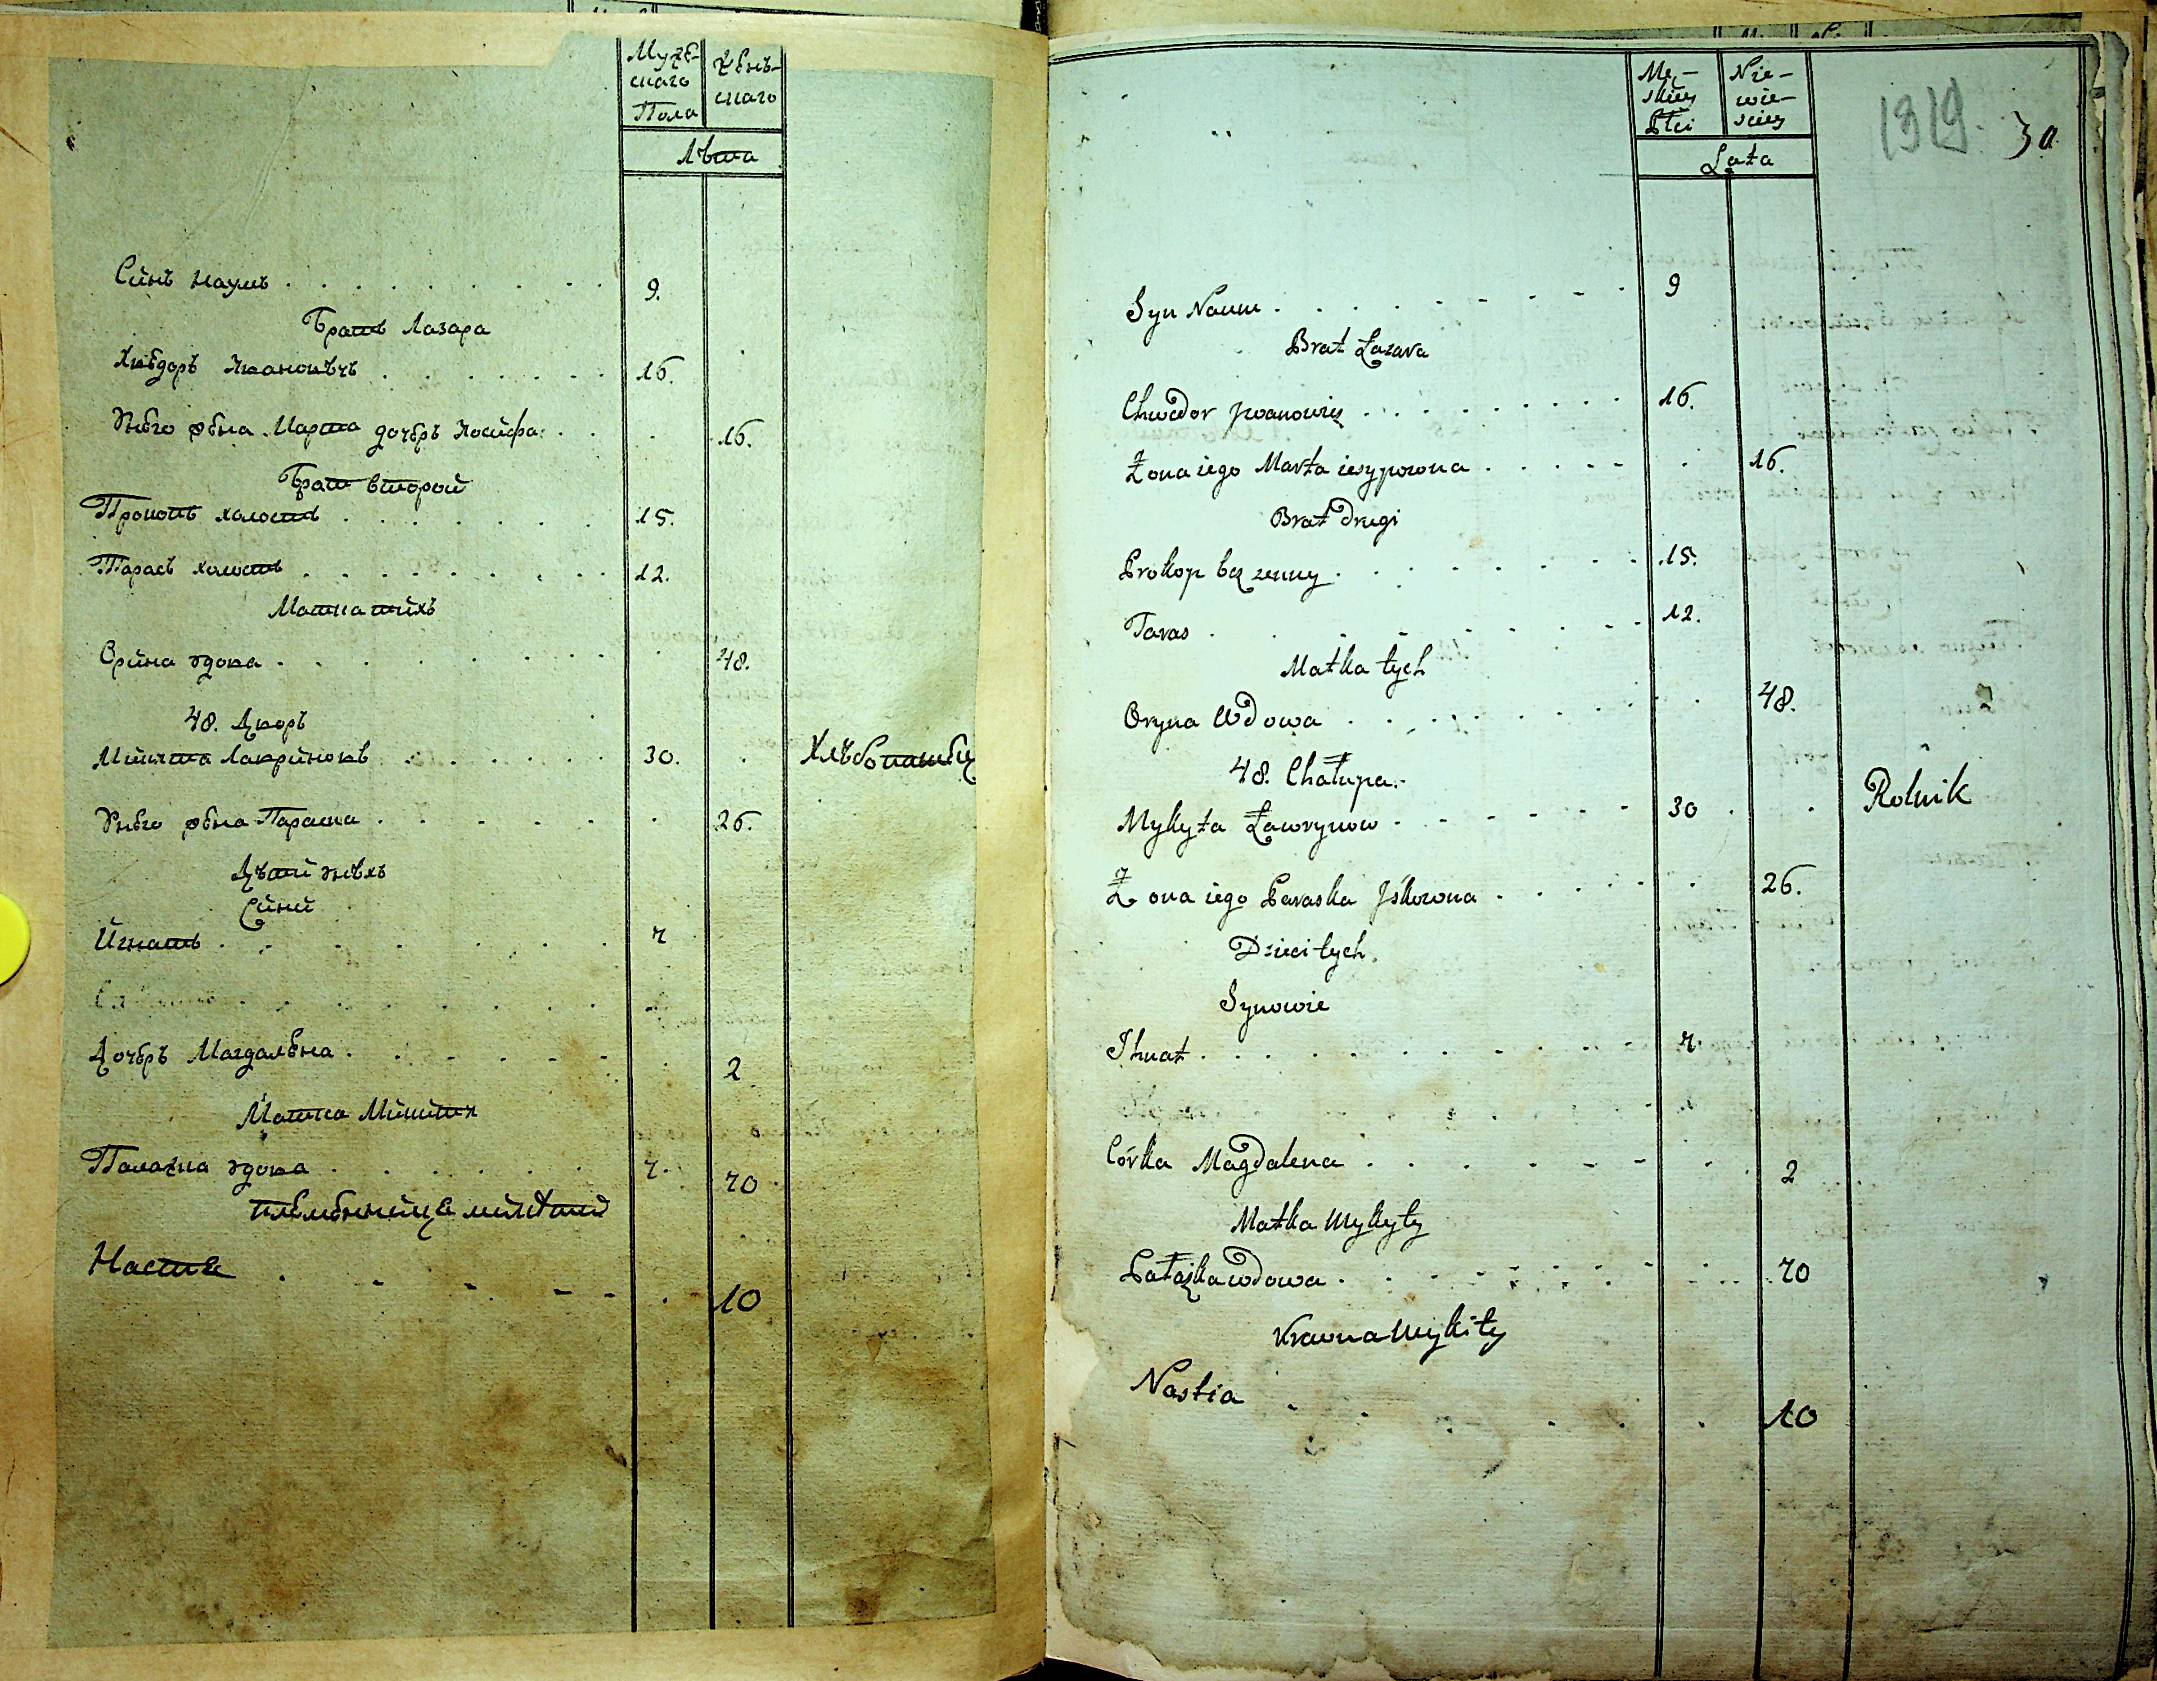 Муже-
скаго
Пола
Женъ-
скаго
Лѣта
Синъ Наумъ 9.
Братъ Лазара
Хведоръ Ивановъчъ 16.
Унего жена Марта дочеръ Иосифа 16.
Братъ второй
Прокопъ холостъ 15.
Тарасъ холостъ 12.
Матка тихъ
Орина вдова 48.
48. Дворъ
Микита Лавриновъ 30. Хлѣбопашец
Унего жена Параска 26.
Дѣти унѣхъ
Сини
Игнатъ 7
Дочеръ Магдалена 2
Матка Микити
Палажка вдова 70
племенница микити
Настя 10
Mę-
skiey
Płci
Nie-
wie-
sciey
Lata
1919.
30
Syn Naum 9
Brat Łazara
Chwedor Jwanowicz 16.
Żona iego Marta iesypowna 16.
Brat drugi
Prokop bez zenny 15.
Taras 12.
Matka tych
Oryna Wdowa 48.
48. Chałupa.
Mykyta Ławrynow 30 Rolnik
Żona iego Paraska Jśkowna 26.
Dzieci tych
Synowie
Ihnat 7
Córka Magdalena 2
Matka Mykyty
Pałażka wdowa 70
Krewna Mykity
Nastia 10